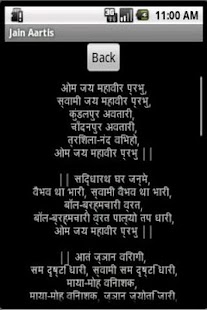 3G 11:00 AM
Jain Aartis
Back
ओम जय महावीर प्रभु,
स्वामी जय महावीर प्रभु,
कुंडलपुर अवतारी,
चाँदनपुर अवतारी,
त्रशिला-नंद वभिहो,
ओम जय महावीर प्रभु ||
|| सिद्धारथ घर जन्मे,
वैभव था भारी, स्वामी वैभव था भारी,
बाल-ब्रह्मचारी व्रत,
बाल-ब्रह्मचारी व्रत पाल्यो तप धारी,
ओम जय महावीर प्रभु ||
|| आतं ज्ञान वरिागी,
सम दृष्टि धारी, स्वामी सम दृष्टि धारी,
माया-मोह वनिाशक,
माया-मोह वनिाशक, ज्ञान ज्योति जारी,
ओम जय महावीर प्रभु ||